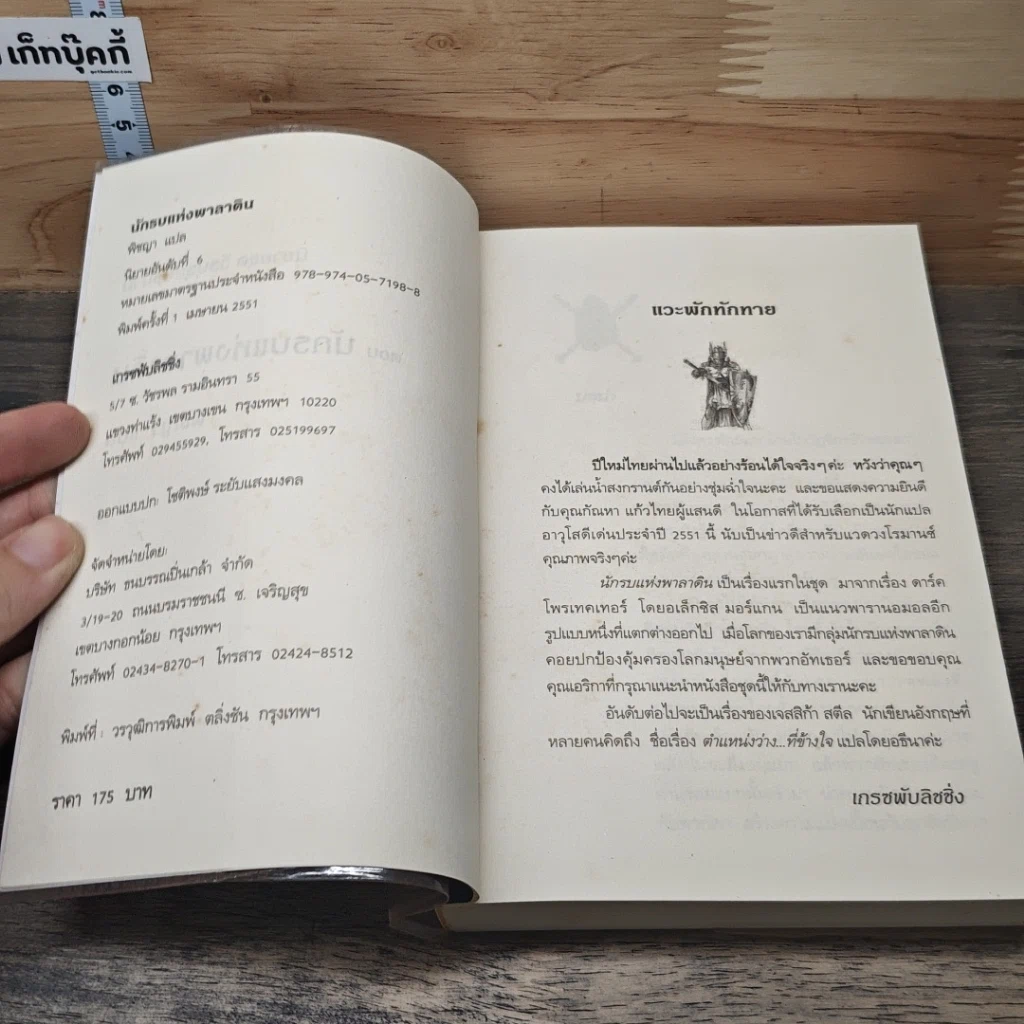 เก็ทบุ๊คกี้
6
5
นักรบแห่งพาลาดิน
พิชญา แปล
นิยายอันดับที่ 6
หมายเลขมาตรฐานประจำหนังสือ 978-974-05-7198-8
พิมพ์ครั้งที่ 1 เมษายน 2551
เกรซพับลิชชิ่ง
5/7 ซ. วัชรพล รามอินทรา 55
แขวงท่าแร้ง เขตบางเขน กรุงเทพฯ 10220
โทรศัพท์ 029455929, โทรสาร 025199697
ออกแบบปก: โชติพงษ์ ระยับแสงมงคล
จัดจำหน่ายโดย:
บริษัท ธนบรรณปิ่นเกล้า จำกัด
3/19-20 ถนนบรมราชชนนี ซ. เจริญสุข
เขตบางกอกน้อย กรุงเทพฯ
โทรศัพท์ 02434-8270-1 โทรสาร 02424-8512
พิมพ์ที่ : วรวุฒิการพิมพ์ ตลิ่งชัน กรุงเทพฯ
ราคา 175 บาท
แวะพักทักทาย
ปีใหม่ไทยผ่านไปแล้วอย่างร้อนได้ใจจริงๆค่ะ หวังว่าคุณๆ
คงได้เล่นน้ำสงกรานต์กันอย่างชุ่มฉ่ำใจนะคะ และขอแสดงความยินดี
กับคุณกัณหา แก้วไทยผู้แสนดี ในโอกาสที่ได้รับเลือกเป็นนักแปล
อาวุโสดีเด่นประจำปี 2551 นี้ นับเป็นข่าวดีสำหรับแวดวงโรมานซ์
คุณภาพจริงๆค่ะ
นักรบแห่งพาลาดิน เป็นเรื่องแรกในชุด มาจากเรื่อง ดาร์ค
โพรเทคเทอร์ โดยอเล็กซิส มอร์แกน เป็นแนวพารานอมอลอีก
รูปแบบหนึ่งที่แตกต่างออกไป เมื่อโลกของเรามีกลุ่มนักรบแห่งพาลาดิน
คอยปกป้องคุ้มครองโลกมนุษย์จากพวกอัทเธอร์ และขอขอบคุณ
คุณเอริกาที่กรุณาแนะนำหนังสือชุดนี้ให้กับทางเรานะคะ
อันดับต่อไปจะเป็นเรื่องของเจสสิก้า สตีล นักเขียนอังกฤษที่
หลายคนคิดถึง ชื่อเรื่อง ตำแหน่งว่าง...ที่ข้างใจ แปลโดยอธีนาค่ะ
เกรซพับลิชชิ่ง